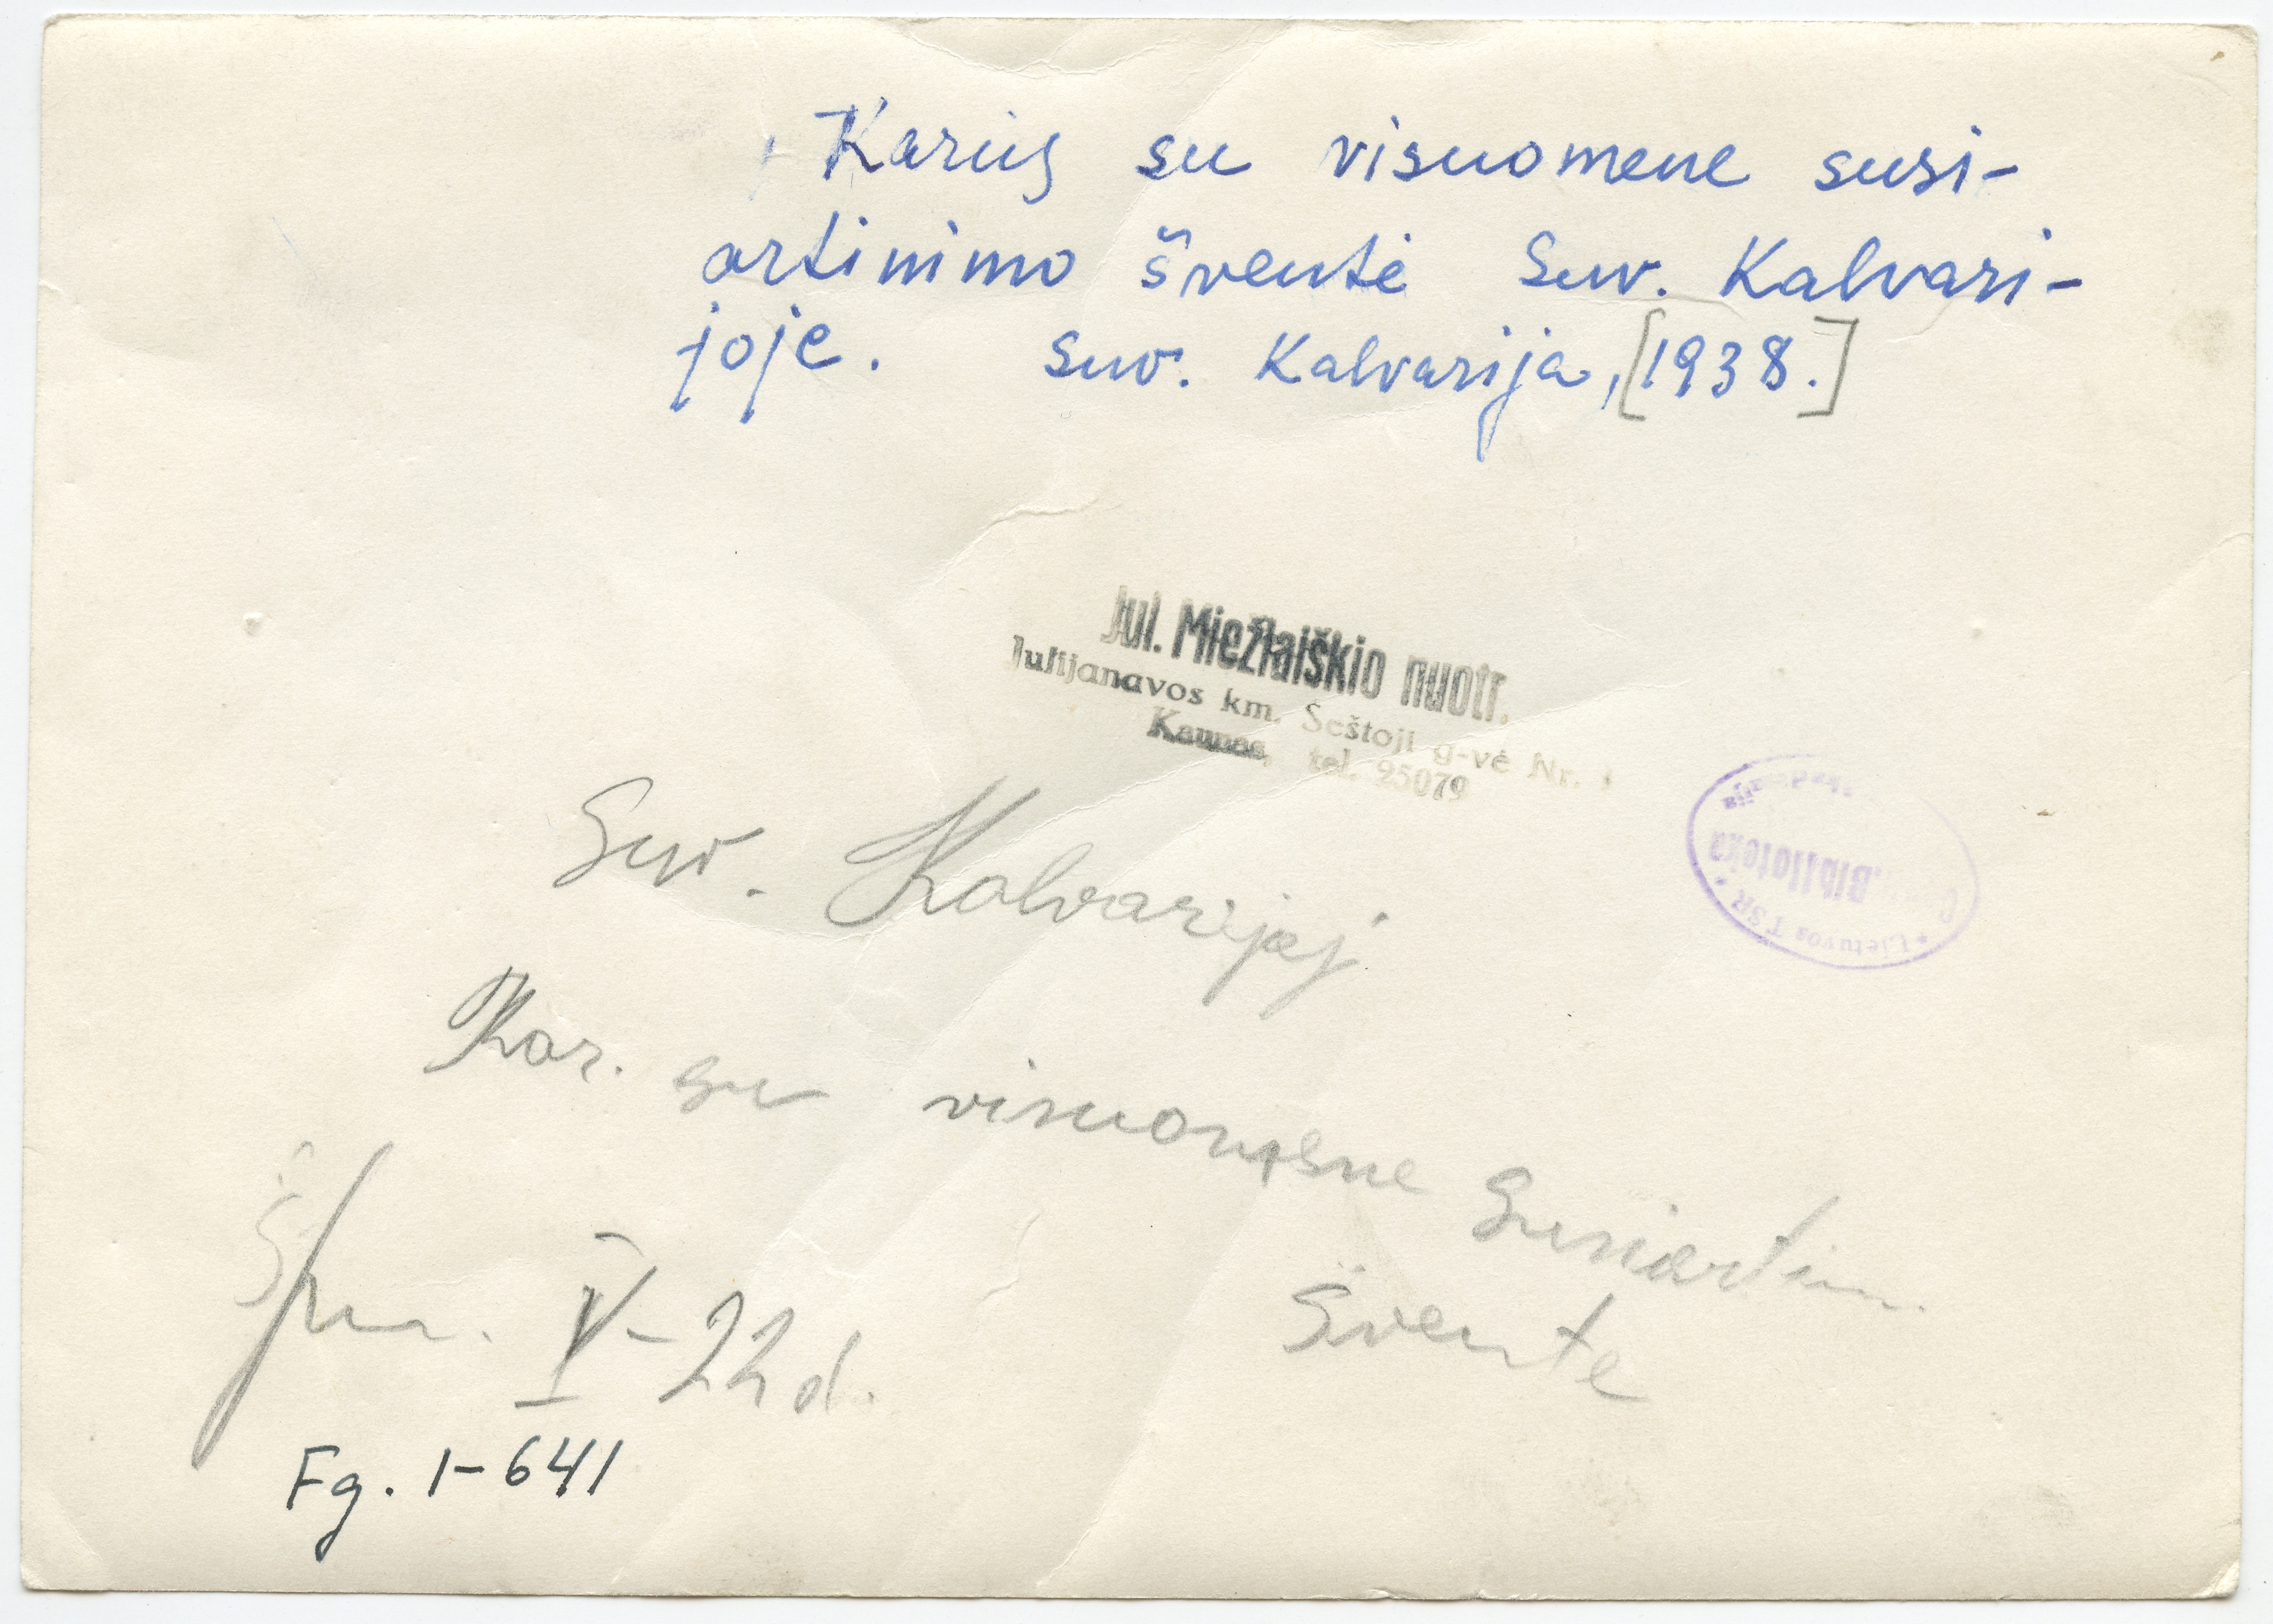 Karių su visuomene susi-
artinimo šventė Suv. Kalvari-
joje. Suv. Kalvarija, [1938.]
Jul. Miežlaiškio nuotr.
Julijanavos km. Šeštoji g-vė Nr.
Kaunas, tel. 25079
Lietuvos TSR
Biblioteka
Suv. Kalvarijoj
Kar. su visuomene Susiartin.
Švente
V-22 d.
Fg. 1-641